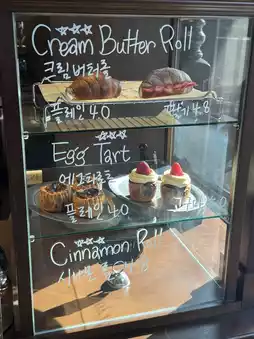 Cream Butter Roll
크림버터롤
플레인 4.0
4.8
Egg Tart
에그타르트
플레인 4.0
4.0
Cinnamon Roll